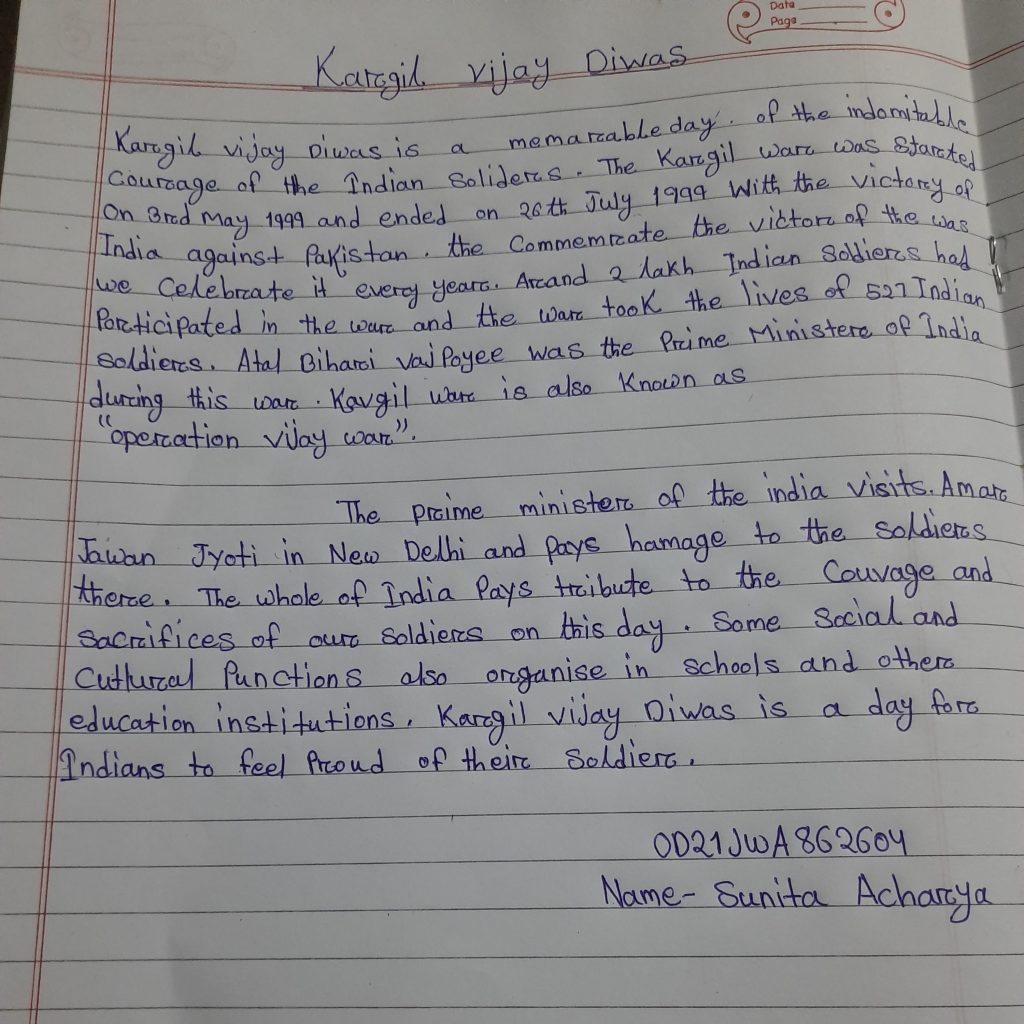 Data
Page
Kargil vijay Diwas
Kargil vijay Diwas is a memarcable day. of the indomitable
Courage of the Indian Soliders. The Kargil war was Started
On 3rd May 1999 and ended on 26th July 1999 With the victory of
India against Pakistan. the Commemrate the victor of the was
we Celebrate it every year. Arcand 2 lakh Indian Soldiers had
Participated in the war and the war took the lives of 527 Indian
soldiers. Atal Bihari vajPayee was the Prime Minister of India
during this war. Kavgil war is also Known as
"operation vijay war".
The prime minister of the india visits. Amar
Jawan Jyoti in New Delhi and pays hamage to the soldiers
there. The whole of India Pays tribute to the Couvage and
sacrifices of our soldiers on this day. Some Social and
Cutlural Punctions also organise in schools and other
education institutions. Kargil vijay Diwas is a day for
Indians to feel Proud of their Soldier.
OD21JWA862604
Name- Sunita Acharya